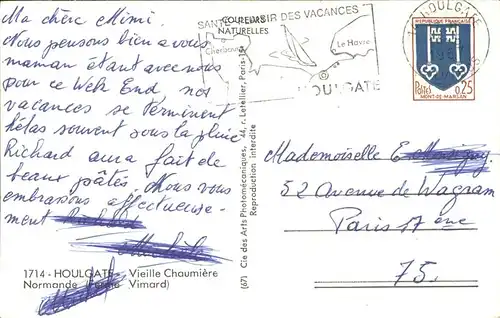 Ma chère Mimi.
Nous pensons bien a vous
maman étant avec nous
pour ce Week End. nos
vacances se terminent
hélas souvent sous la pluie
Richard aura fait de
beaux pâtés. Nous vous
embrassons affectueuse-
ment
1714 - HOULGATE - Vieille Chaumière
Normande (Ferme Vimard)
(67) Cie des Arts Photomécaniques, 44, r. Letellier, Paris-15e
Reproduction interdite
COULEURS
NATURELLES
SANTÉ PLAISIR DES VACANCES
Cherbourg
Le Havre
HOULGATE
HOULGATE
REPUBLIQUE FRANÇAISE
Postes 0,25
MONT-DE-MARSAN
Mademoiselle
52 Avenue de Wagram
Paris 17 ème
75.